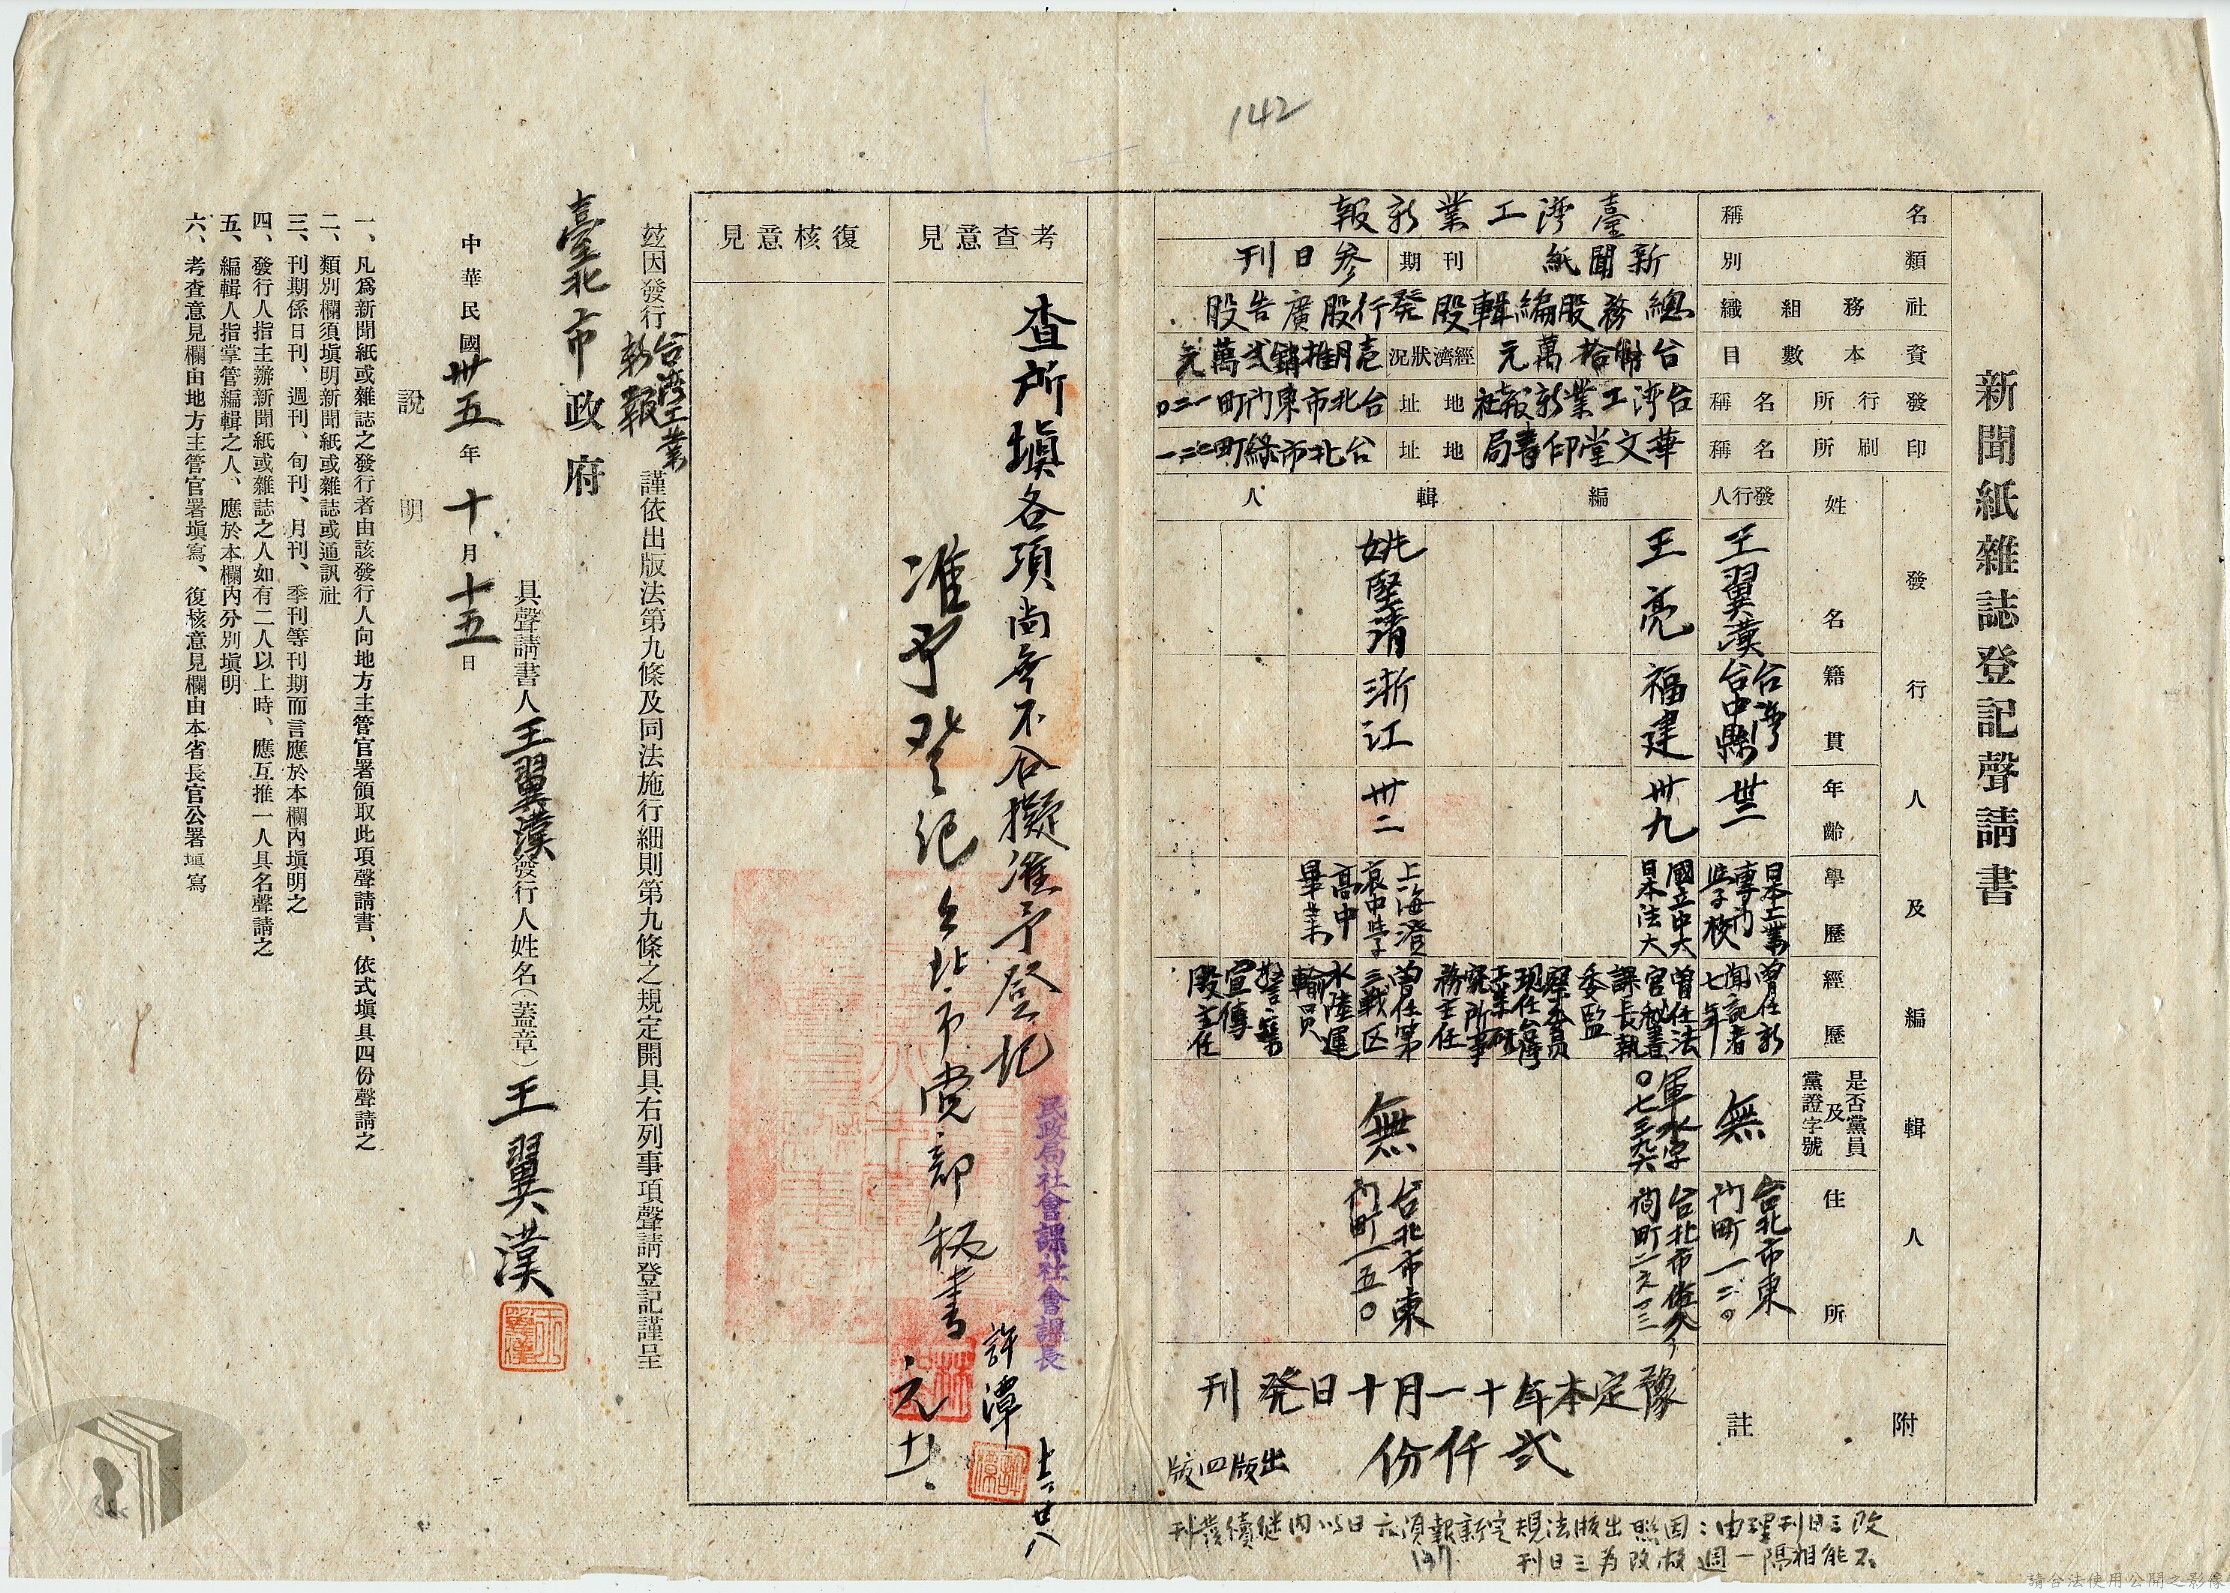 142
新聞紙雜誌登記聲請書
名稱
臺灣工業新報
類別
新聞紙
刊期
參日刊
社務組織
總務股編輯股發行股廣告股
資本數目
台幣拾萬元
經濟狀況
月推銷弍萬元
發行所
名稱
台灣工業新報社
地址
台北市東門町一二〇
印刷所
名稱
華文堂印書局
地址
台北市綠町
發行人及編輯人
姓名
籍貫
年齡
學歷
經歷
是否黨員及黨證字號
住所
發行人
王翼漢
台灣台中縣
日本工業專門學校
曾任新聞記者七年
無
台北市東門町一二〇
編輯人
王亮
福建
卅九
國立中大
日本法大
曾任法官秘書課長執委監察委員
現任台灣工業研究所事務主任
軍水字
台北市
姚堅清
浙江
卅二
上海澄衷中學高中畢業
曾任第三戰區水陸運輸員
宣傳股主任
無
台北市東門町一五〇
附註
豫定本年十一月十日發刊
弍仟份
出版四版
改三日刊理由：因照出版法規定新報須六日以內繼續發刊
不能相隔一週故改為三日刊
137
考查意見
查所填各項尚無不合擬准予登記
民政局社會課社會課長
許潭
十一、廿八
准予登記 台北市黨部秘書
復核意見
茲因發行台灣工業新報謹依出版法第九條及同法施行細則第九條之規定開具右列事項聲請登記謹呈
臺北市政府
具聲請書人王翼漢發行人姓名（蓋章）王翼漢
中華民國卅五年十月十五日
說明
一、凡爲新聞紙或雜誌之發行者由該發行人向地方主管官署領取此項聲請書、依式填具四份聲請之
二、類別欄須填明新聞紙或雜誌或通訊社
三、刊期係日刊、週刊、旬刊、月刊、季刊等刊期而言應於本欄內填明之
四、發行人指主辦新聞紙或雜誌之人如有二人以上時、應互推一人具名聲請之
五、編輯人指掌管編輯之人、應於本欄內分別填明
六、考查意見欄由地方主管官署填寫、復核意見欄由本省長官公署填寫
請合法使用公開之影像